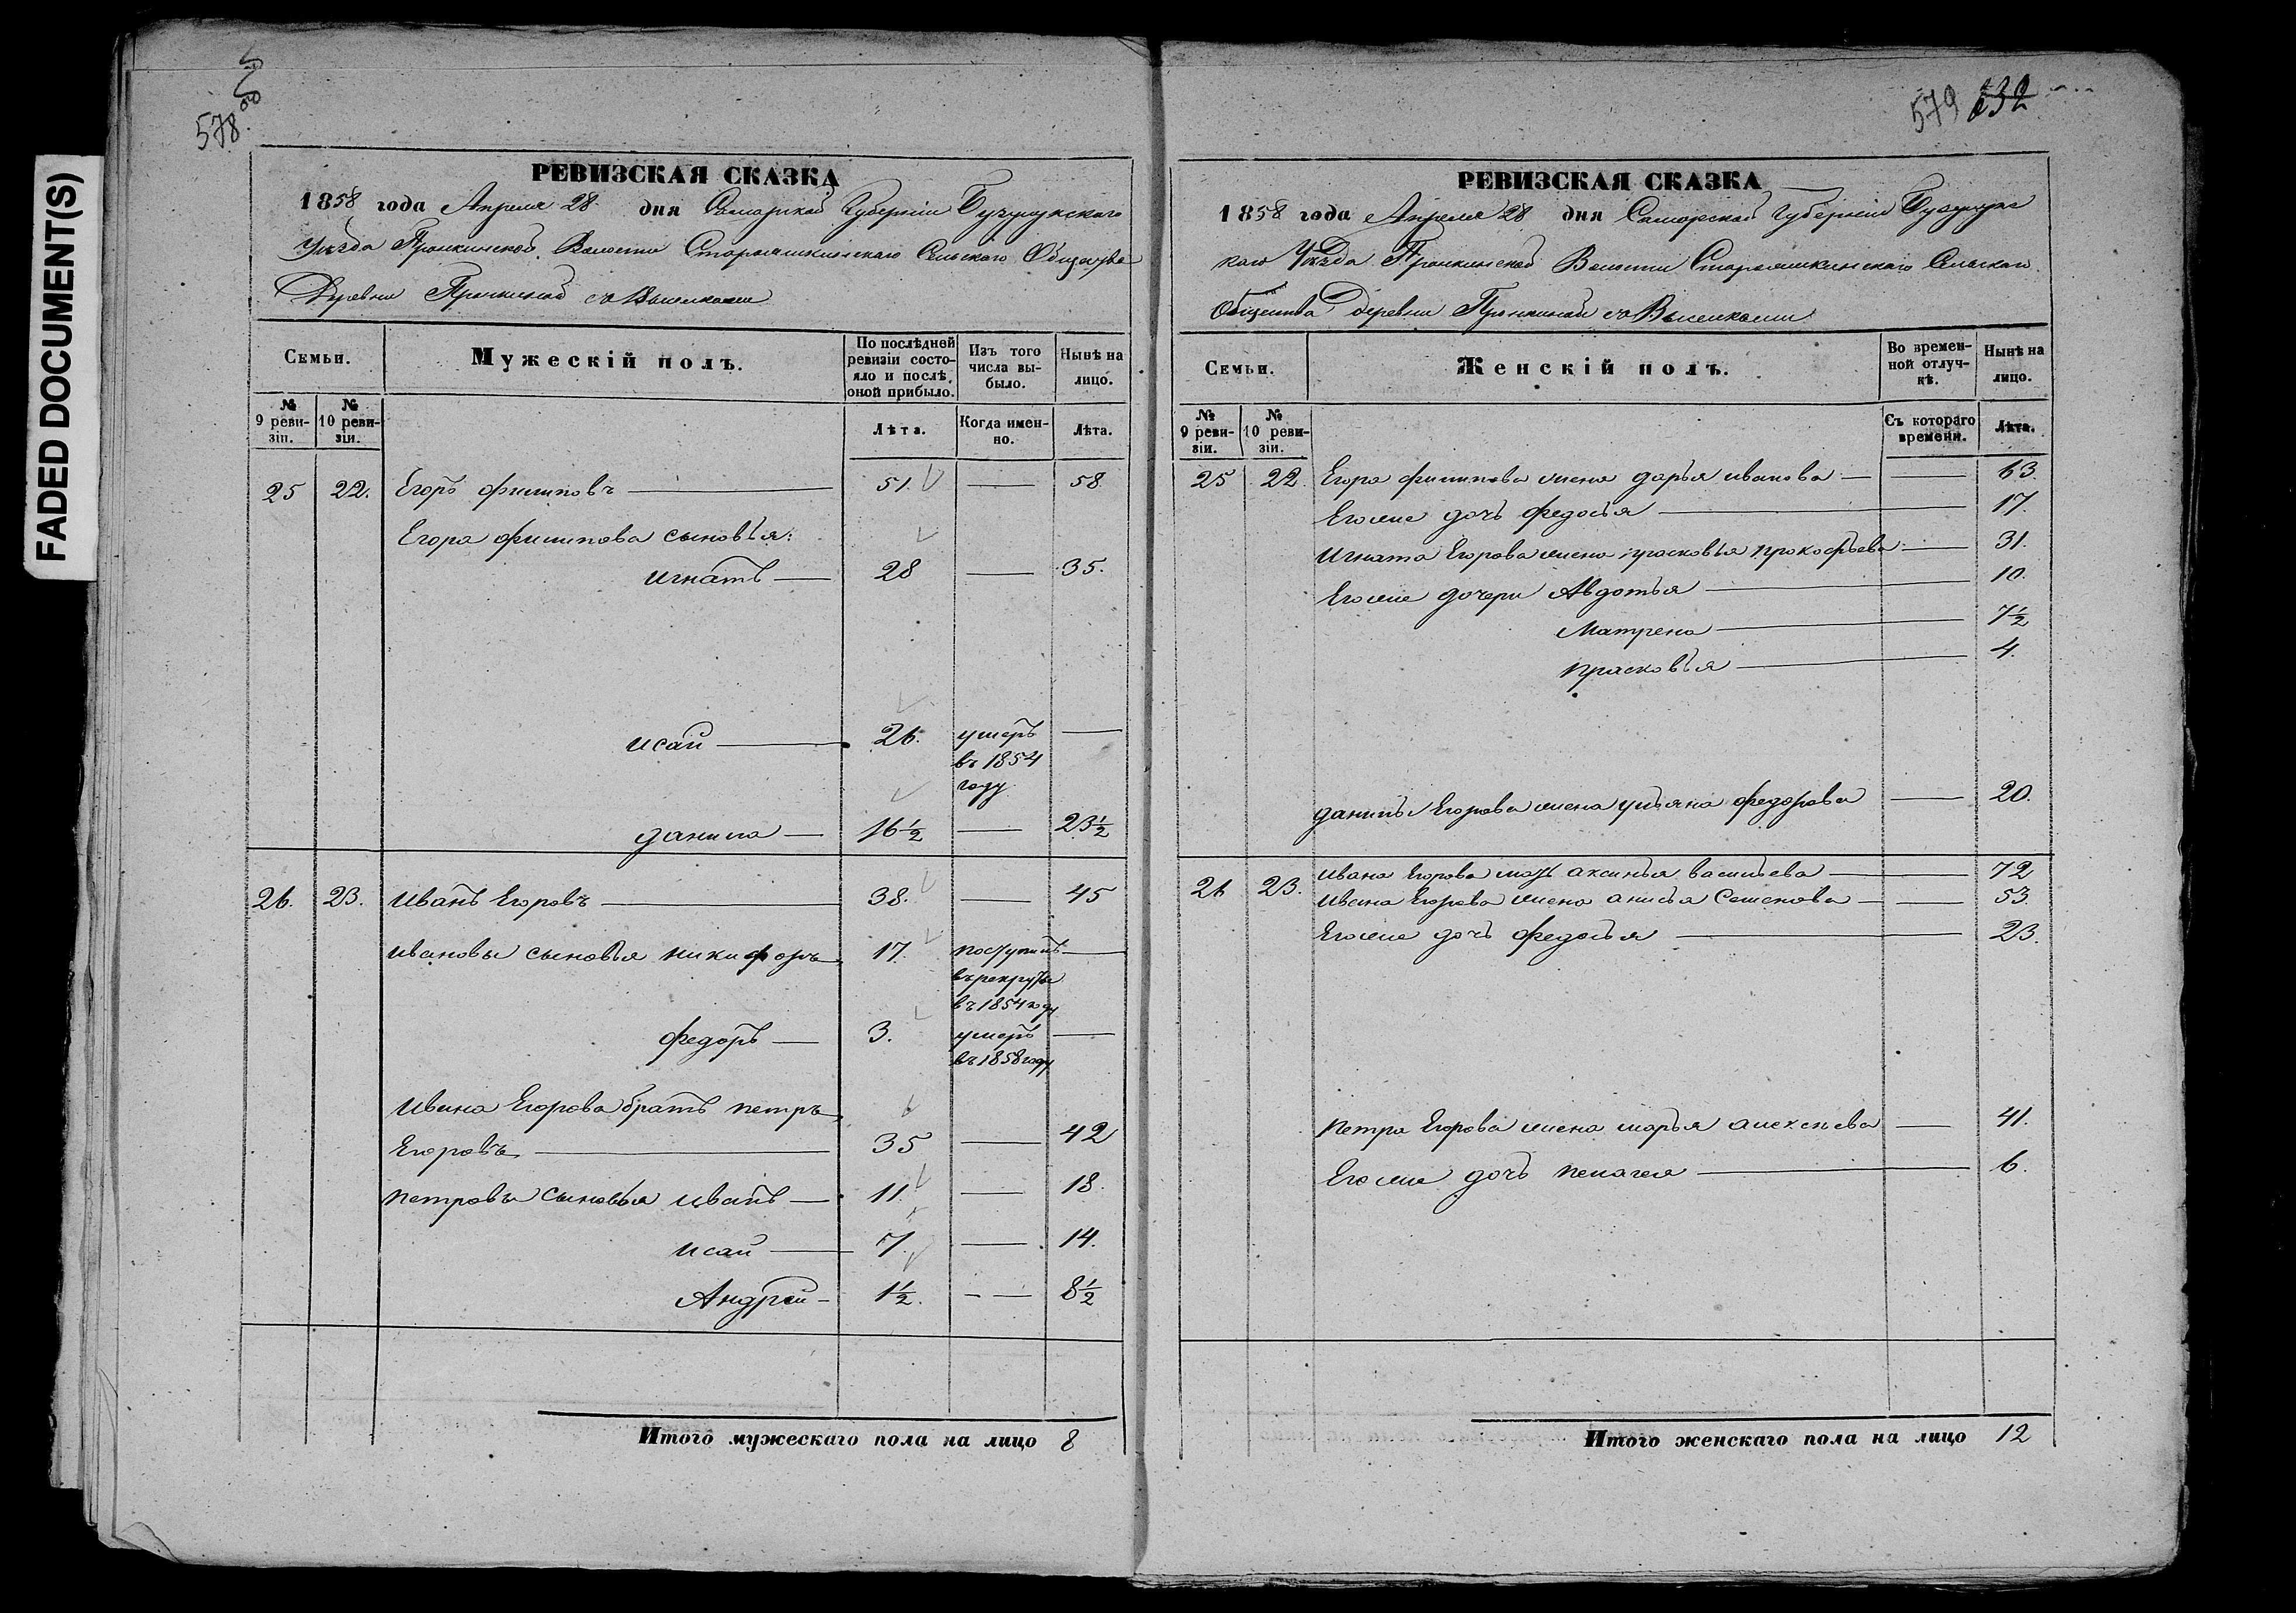 FADED DOCUMENT(S)
578
РЕВИЗСКАЯ СКАЗКА
1858 года Апреля 28 дня Самарской Губернiи Бузулукскаго
Уѣзда Пронкинской Волости Староашкинскаго Сельскаго Общества
Деревни Пронкиной съ Выселками
Семьи.
Мужескiй полъ.
По послѣдней ревизiи состо-
яло и послѣ оной прибыло.
Изъ того числа вы-
было.
Нынѣ на лицо.
№ 9 реви-
зiи.
№ 10 реви-
зiи.
Лѣта.
Когда имен-
но.
Лѣта.
25 22. Егоръ филиповъ 51. — 58.
Егора филипова сыновья:
игнатъ — 28 — 35.
исай — 26. умеръ —
въ 1854
году
данила — 16½ — 23½
26. 23. иванъ Егоровъ 38. — 45
ивановы сыновья никифоръ 17. поступилъ —
въ рекруты
въ 1854 году
федоръ — 3. умеръ —
въ 1858 году
ивана Егорова братъ петръ
Егоровъ — 35 — 42
петровы сыновья иванъ — 11. — 18.
исай — 7. — 14.
Андрей - 1½. — 8½
Итого мужескаго пола на лицо 8
579 232
РЕВИЗСКАЯ СКАЗКА
1858 года Апреля 28 дня Самарской Губернiи Бузулукс
каго Уѣзда Пронкинской Волости Староашкинскаго Сельскаго
Общества Деревни Пронкиной съ Выселками
Семьи.
Женскiй полъ.
Во времен-
ной отлуч-
кѣ.
Нынѣ на лицо.
№ 9 реви-
зiи.
№ 10 реви-
зiи.
Съ котораго времени.
Лѣта.
25 22. Егора филипова жена дарья иванова — 63.
Его же дочь федосья — 17.
игната Егорова жена прасковья прокофьева — 31.
Его же дочери Авдотья — 10.
Матрена — 7½
прасковья — 4.
данилы Егорова жена ульяна федорова — 20.
26 23. ивана Егорова мать аксинья васильева — 72
ивана Егорова жена анисья Семенова — 53.
Его же дочь федосья — 23.
петра Егорова жена марья алексеева — 41.
Его же дочь пелагея — 6.
Итого женскаго пола на лицо 12